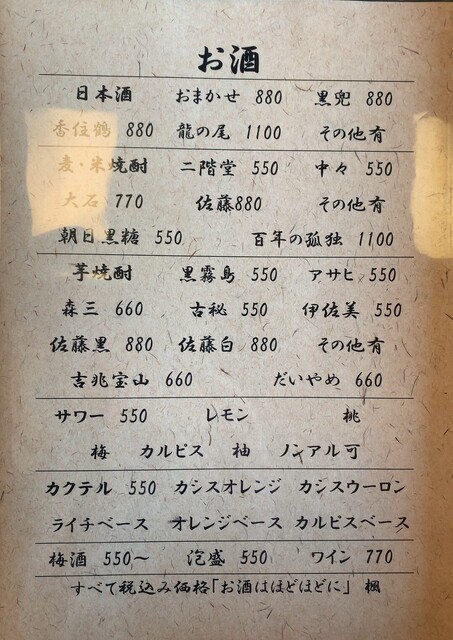 お酒
日本酒 おまかせ 880 黒兜 880
香住鶴 880 龍の尾 1100 その他有
麦・米焼酎 二階堂 550 中々 550
大石 770 佐藤880 その他有
朝日黒糖 550 百年の孤独 1100
芋焼酎 黒霧島 550 アサヒ 550
森三 660 古秘 550 伊佐美 550
佐藤黒 880 佐藤白 880 その他有
吉兆宝山 660 だいやめ 660
サワー 550 レモン 桃
梅 カルピス 柚 ノンアル可
カクテル 550 カシスオレンジ カシスウーロン
ライチベース オレンジベース カルピスベース
梅酒 550～ 泡盛 550 ワイン 770
すべて税込み価格「お酒はほどほどに」 楓